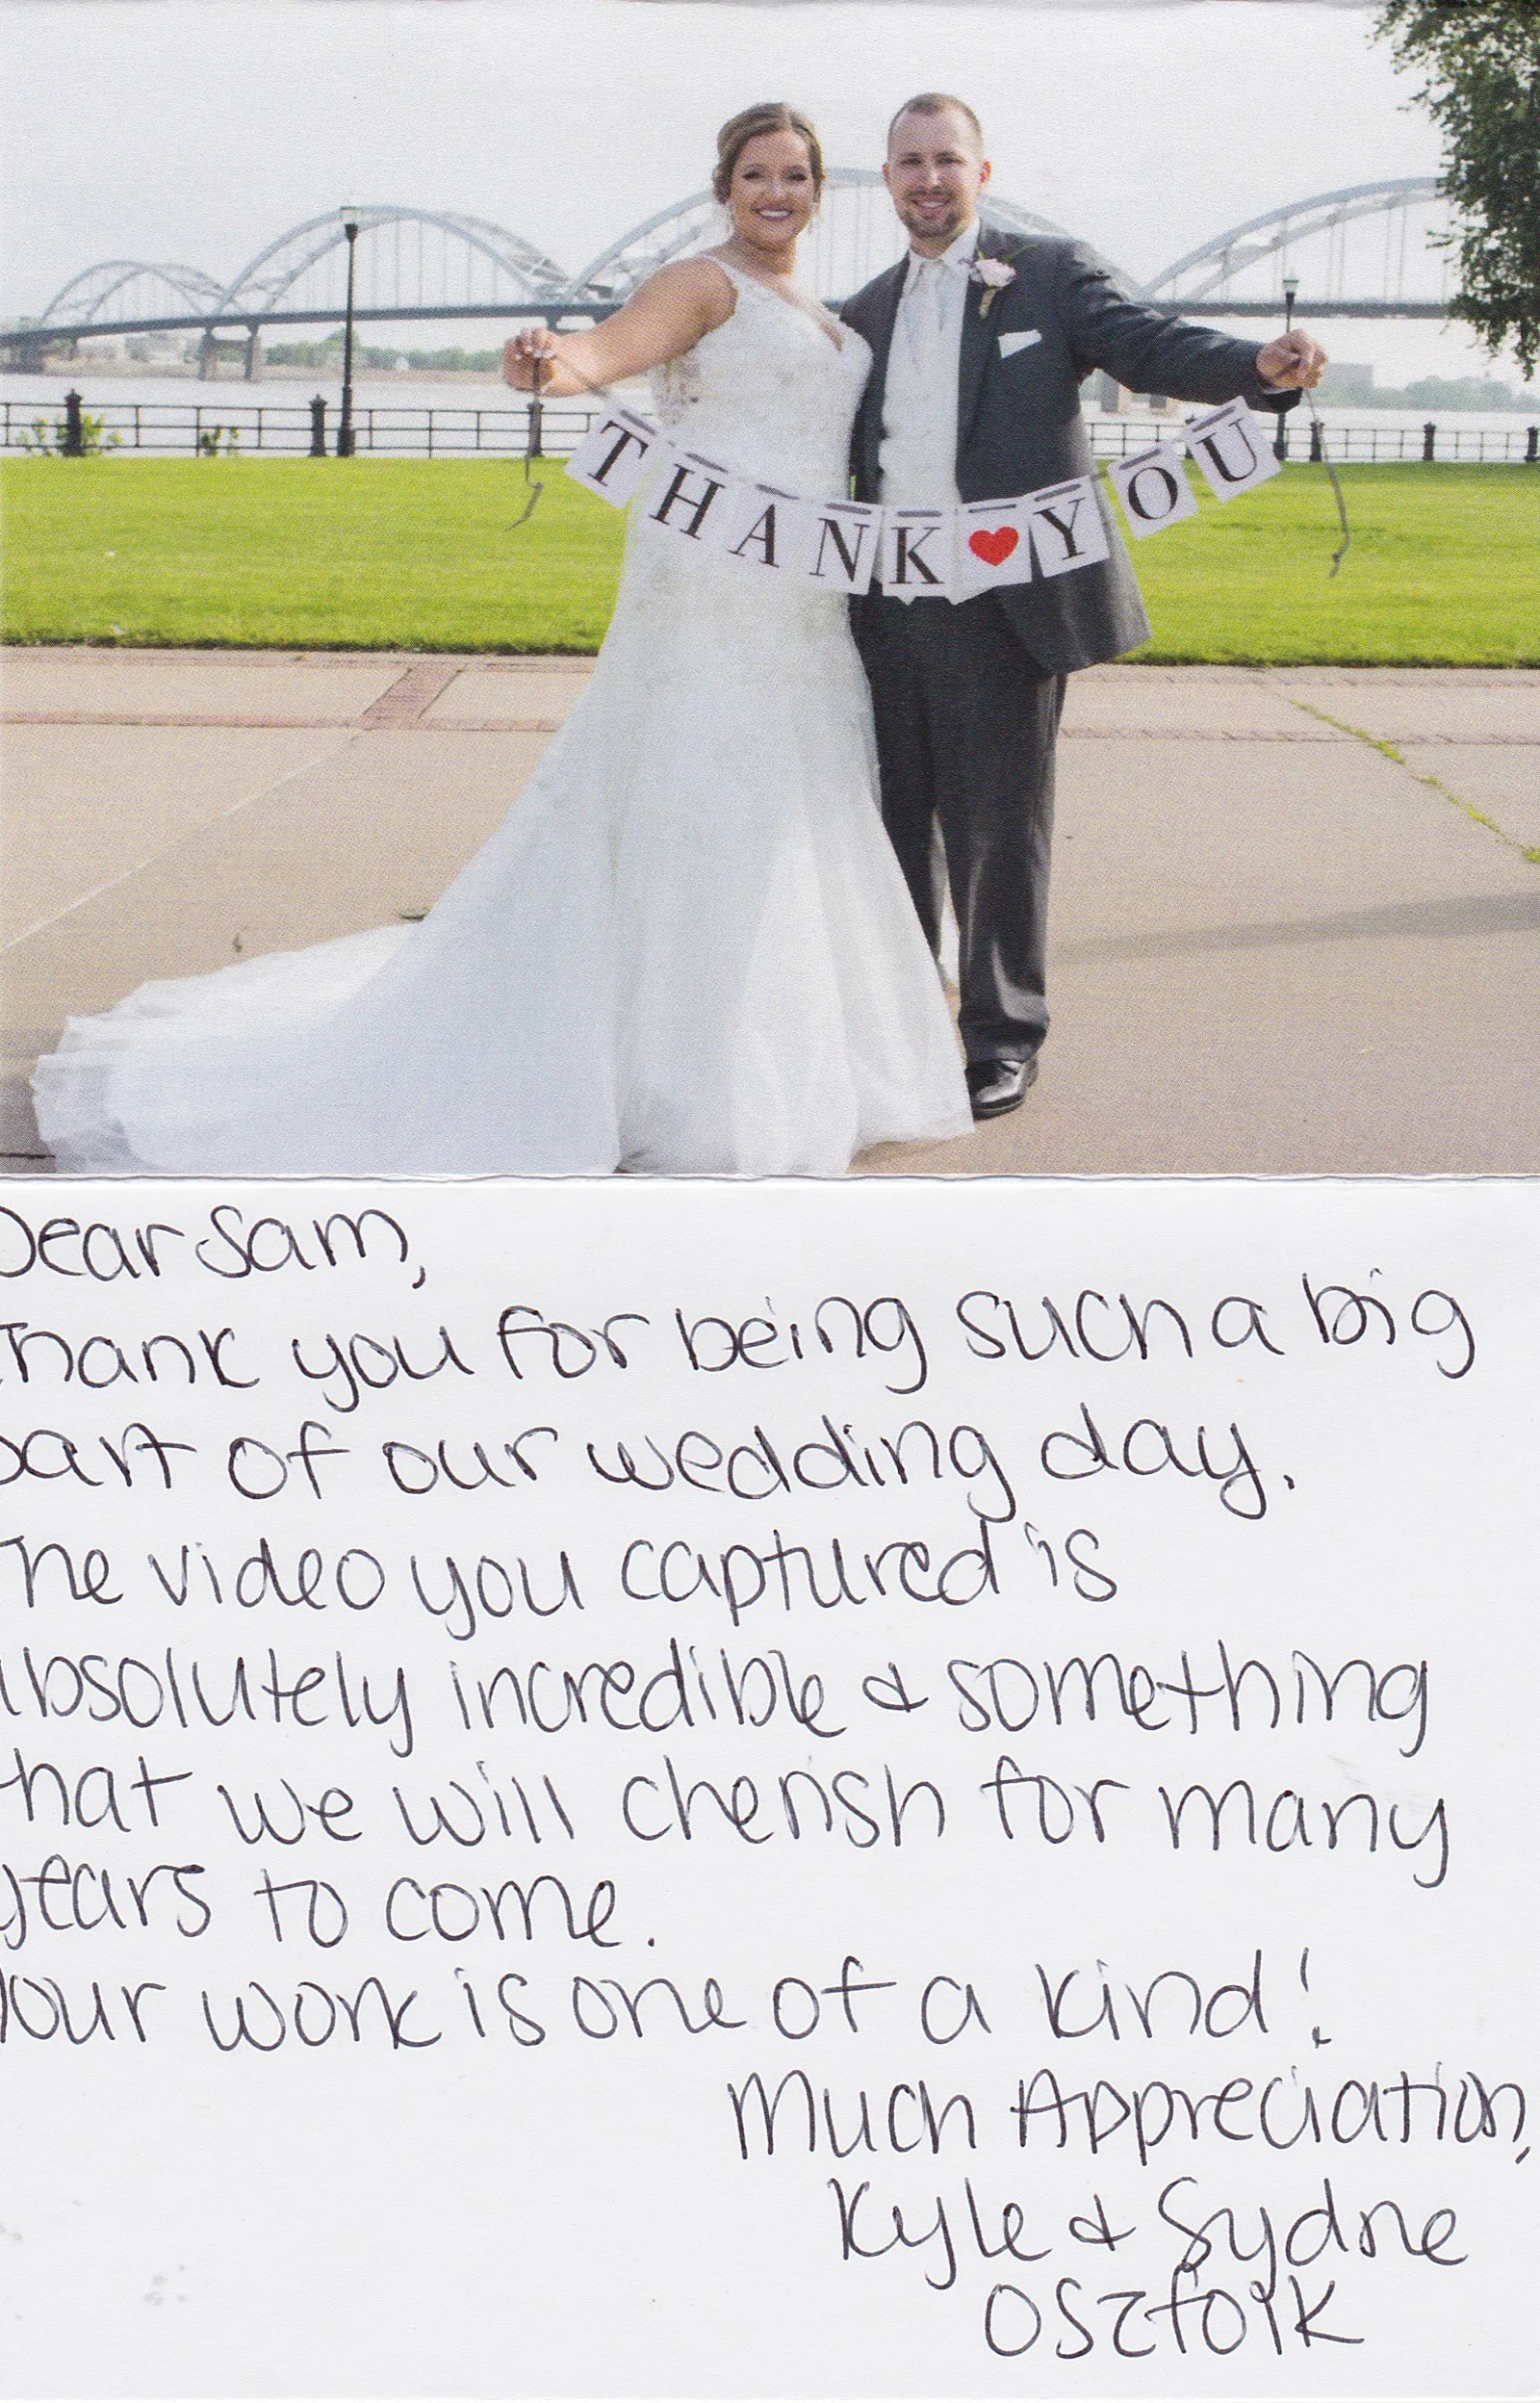 THANK♥YOU
Dear Sam,
Thank you for being such a big
part of our wedding day.
The video you captured is
absolutely incredible & something
that we will cherish for many
years to come.
Your work is one of a kind!
Much Appreciation,
Kyle & Sydne